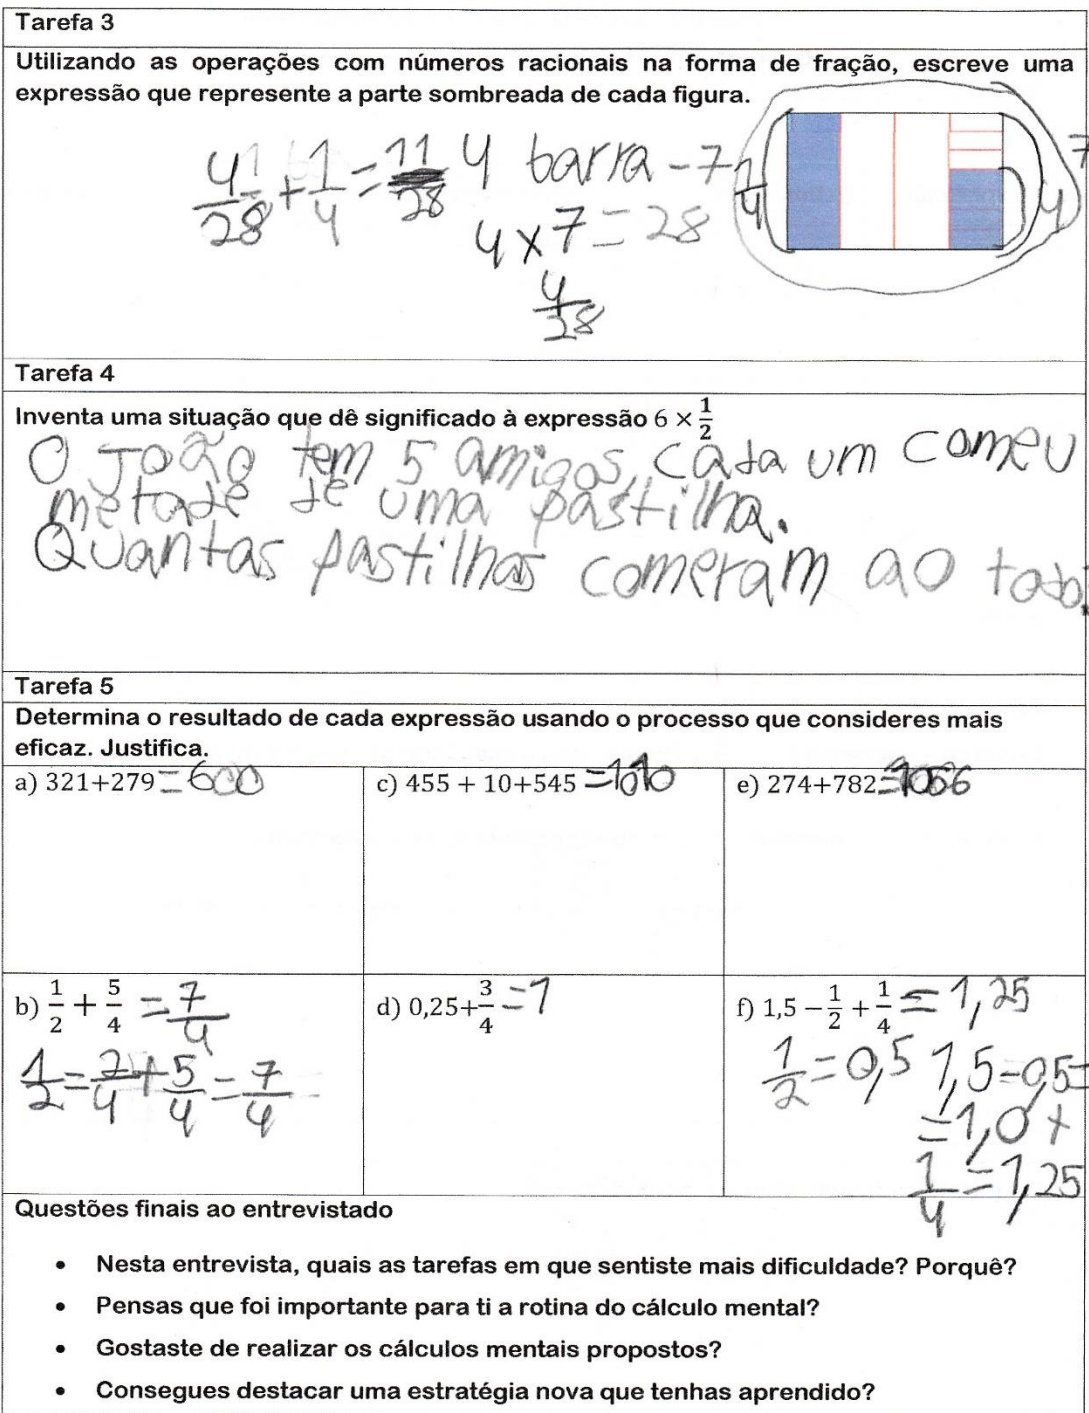 Tarefa 3
Utilizando as operações com números racionais na forma de fração, escreve uma
expressão que represente a parte sombreada de cada figura.
4/28 + 1/4 = 11/28
4 barra - 7
4 x 7 = 28
4/28
1/4
4
7
Tarefa 4
Inventa uma situação que dê significado à expressão 6 × 1/2
O João tem 5 amigos, cada um comeu
metade de uma pastilha.
Quantas pastilhas comeram ao todo?
Tarefa 5
Determina o resultado de cada expressão usando o processo que consideres mais
eficaz. Justifica.
a) 321+279 = 600
c) 455 + 10+545 = 1010
e) 274+782 = 1056
b) 1/2 + 5/4 = 7/4
1/2 = 2/4 + 5/4 = 7/4
d) 0,25+3/4 = 1
f) 1,5 − 1/2 + 1/4 = 1,25
1/2 = 0,5 1,5 - 0,5 =
= 1,0 +
1/4 = 1,25
Questões finais ao entrevistado
• Nesta entrevista, quais as tarefas em que sentiste mais dificuldade? Porquê?
• Pensas que foi importante para ti a rotina do cálculo mental?
• Gostaste de realizar os cálculos mentais propostos?
• Consegues destacar uma estratégia nova que tenhas aprendido?